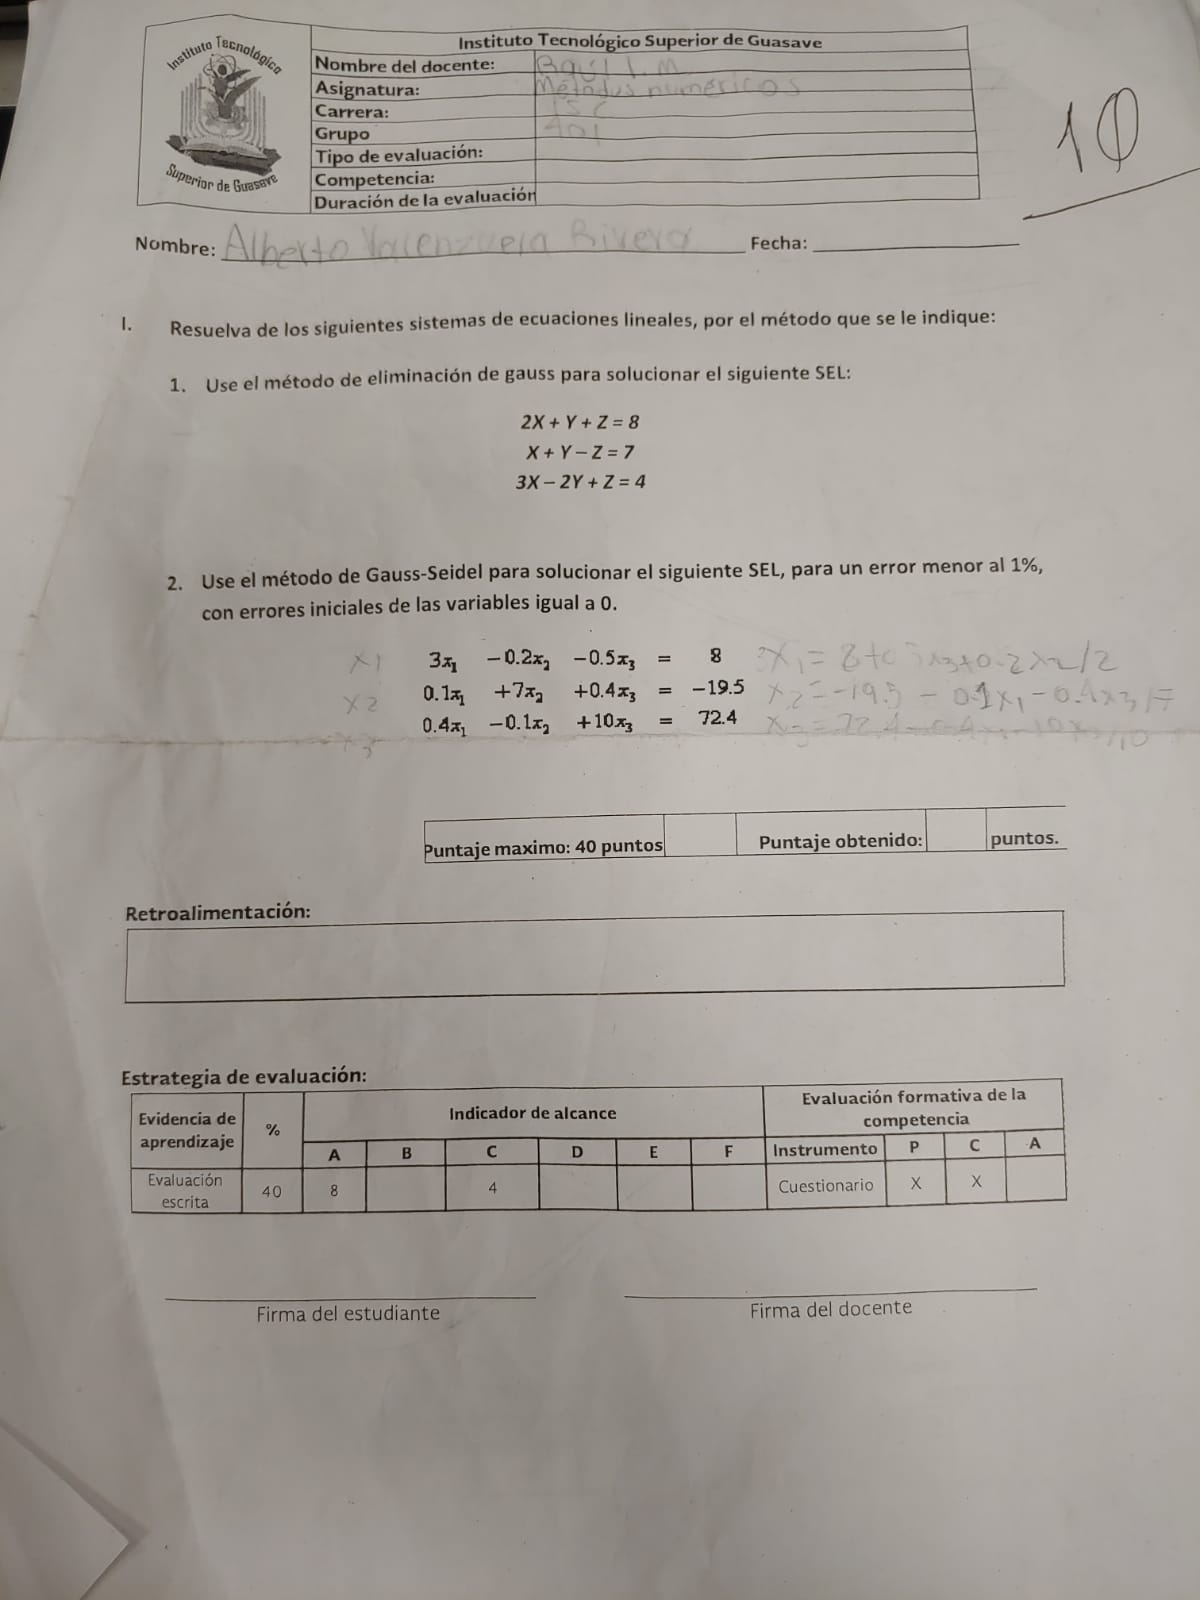 Instituto Tecnológico
Superior de Guasave
Instituto Tecnológico Superior de Guasave
Nombre del docente:
Asignatura: Métodos numéricos
Carrera: ISC
Grupo 401
Tipo de evaluación:
Competencia:
Duración de la evaluación
10
Nombre: Alberto Valenzuela Rivera Fecha:
I. Resuelva de los siguientes sistemas de ecuaciones lineales, por el método que se le indique:
1. Use el método de eliminación de gauss para solucionar el siguiente SEL:
2X + Y + Z = 8
X + Y – Z = 7
3X – 2Y + Z = 4
2. Use el método de Gauss-Seidel para solucionar el siguiente SEL, para un error menor al 1%,
con errores iniciales de las variables igual a 0.
x1 3x₁ −0.2x₂ −0.5x₃ = 8
x2 0.1x₁ +7x₂ +0.4x₃ = −19.5 x2=-19.5 - 0.1x1-0.4x3/7
x3 0.4x₁ −0.1x₂ +10x₃ = 72.4
Puntaje maximo: 40 puntos Puntaje obtenido: puntos.
Retroalimentación:
Estrategia de evaluación:
Evidencia de aprendizaje % Indicador de alcance Evaluación formativa de la competencia
A B C D E F Instrumento P C A
Evaluación escrita 40 8 4 Cuestionario X X
Firma del estudiante Firma del docente